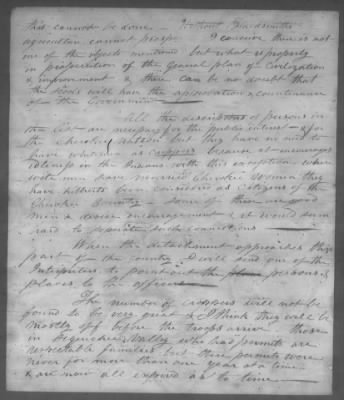 this cannot be done. Without Blacksmiths
agriculture cannot prosper I conceive there is not
one of the objects mentioned but what is properly
in prosecution of the General plan of Civilization
& improvement & there can be no doubt that
the Goods will have the approbation & countenance
of the Government
All the descriptions of persons on
the list are necessary for the public interest & for
the Cherokee Nation but they have no need to
have what are as croppers because it encourages
idleness in the Indians with this exception where
white men have married Cherokee Women they
have hitherto been considered as Citizens of the
Cherokee Country some of these are good
men & deserve encouragement & it would seem
hard to separate such connections
When the detachment approaches this
part of the country I will send one of the
Interpreters to point out the persons &
places to the officer
The number of croppers will not be
found to be very great & I think they will be
mostly off before the troops arrive those
in Sequchee Valley who had permits are
respectable families but their permits were
never for more than one year at a time
& are now all expired as to time